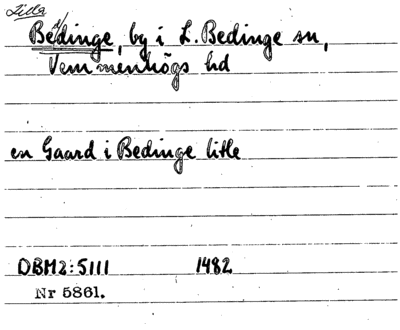 Lilla
Bedinge, by i L. Bedinge sn,
Vemmenhögs hd
en Gaard i Bedinge litle
DBM2:5111 1482
Nr 5861.